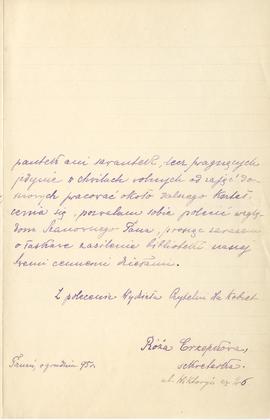 pantek ani szwantek, lecz pragnących
jedynie w chwilach wolnych od zajęć do-
mowych pracować około dalszego kształ-
cenia się, pozwalam sobie polecić wzglę-
dom Szanownego Pana, prosząc zarazem
o łaskawe zasilenie biblioteki naszej
swemi cennemi dziełami.
Z polecenia Wydziału Czytelni dla Kobiet
Róża
sekretarka.
grudnia 95 r.
ul.